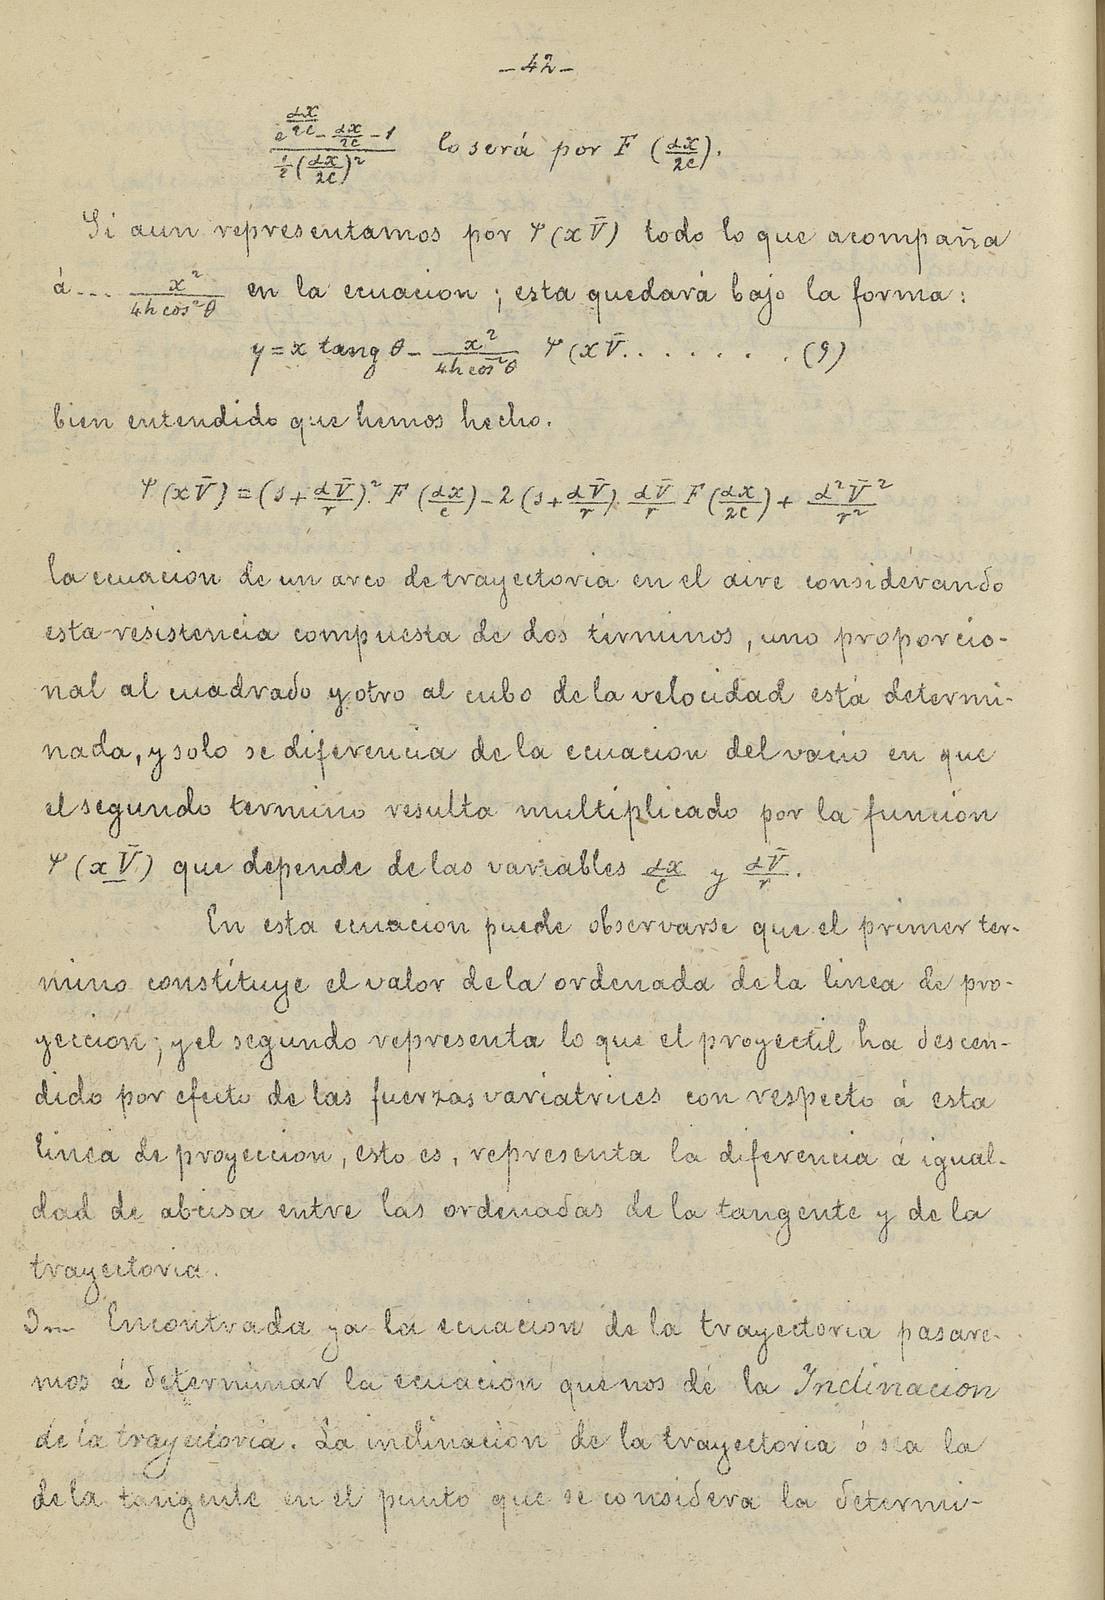 -42-
\frac{e^{\frac{αx}{2c}} - \frac{αx}{2c} - 1}{\frac{1}{2}(\frac{αx}{2c})^2} lo será por F (\frac{αx}{2c}).
Si aun representamos por Ψ(x V̄) todo lo que acompaña
á... \frac{x^2}{4h cos^2 θ} en la ecuacion; esta quedará bajo la forma:
y = x tang θ - \frac{x^2}{4h cos^2 θ} Ψ(x V̄. . . . . . . . (9)
bien entendido que hemos hecho.
Ψ(x V̄) = (1 + \frac{αV̄}{r})^2 F (\frac{αx}{c}) - 2 (1 + \frac{αV̄}{r}) \frac{αV̄}{r} F (\frac{αx}{2c}) + \frac{α^2 V̄^2}{r^2}
la ecuacion de un arco de trayectoria en el aire considerando
esta resistencia compuesta de dos términos, uno proporcio-
nal al cuadrado y otro al cubo de la velocidad está determi-
nada, y solo se diferencia de la ecuacion del vacio en que
el segundo termino resulta multiplicado por la funcion
Ψ(x V̄) que depende de las variables \frac{αx}{c} y \frac{αV̄}{r}.
En esta ecuacion puede observarse que el primer ter-
mino constituye el valor de la ordenada de la linea de pro-
yeccion; y el segundo representa lo que el proyectil ha descen-
dido por efecto de las fuerzas variatrices con respecto á esta
linea de proyeccion, esto es, representa la diferencia á igual-
dad de abcisa entre las ordenadas de la tangente y de la
trayectoria.
3... Encontrada ya la ecuacion de la trayectoria pasare-
mos á determinar la ecuacion que nos dé la Inclinacion
de la trayectoria. La inclinacion de la trayectoria ó sea la
de la tangente en el punto que se considera la determi-